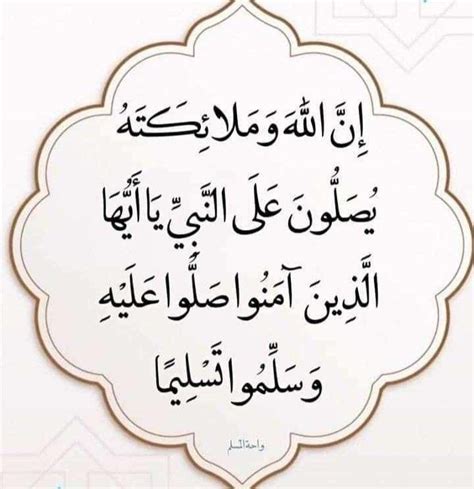 إِنَّ اللَّهَ وَمَلائِكَتَهُ
يُصَلُّونَ عَلَى النَّبِيِّ يَا أَيُّهَا
الَّذِينَ آمَنُوا صَلُّوا عَلَيْهِ
وَسَلِّمُوا تَسْلِيمًا
واحة المسلم